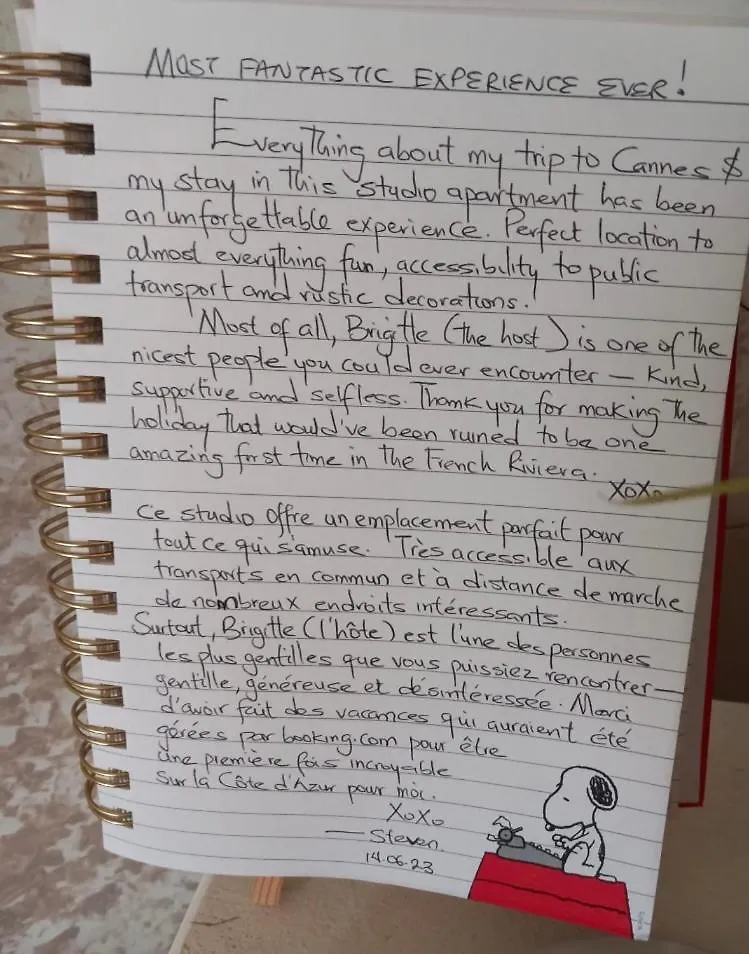 MOST FANTASTIC EXPERIENCE EVER!
Everything about my trip to Cannes &
my stay in this studio apartment has been
an unforgettable experience. Perfect location to
almost everything fun, accessibility to public
transport and rustic decorations.
Most of all, Brigitte (the host) is one of the
nicest people you could ever encounter – Kind,
supportive and selfless. Thank you for making the
holiday that would've been ruined to be one
amazing first time in the French Riviera.
XoXo
Ce studio offre un emplacement parfait pour
tout ce qui s'amuse. Très accessible aux
transports en commun et à distance de marche
de nombreux endroits intéressants.
Surtout, Brigitte (l'hôte) est l'une des personnes
les plus gentilles que vous puissiez rencontrer –
gentille, généreuse et désintéressée. Merci
d'avoir fait des vacances qui auraient été
gérées par booking.com pour être
une première fois incroyable
Sur la Côte d'Azur pour moi.
XoXo
— Steven
14.06.23